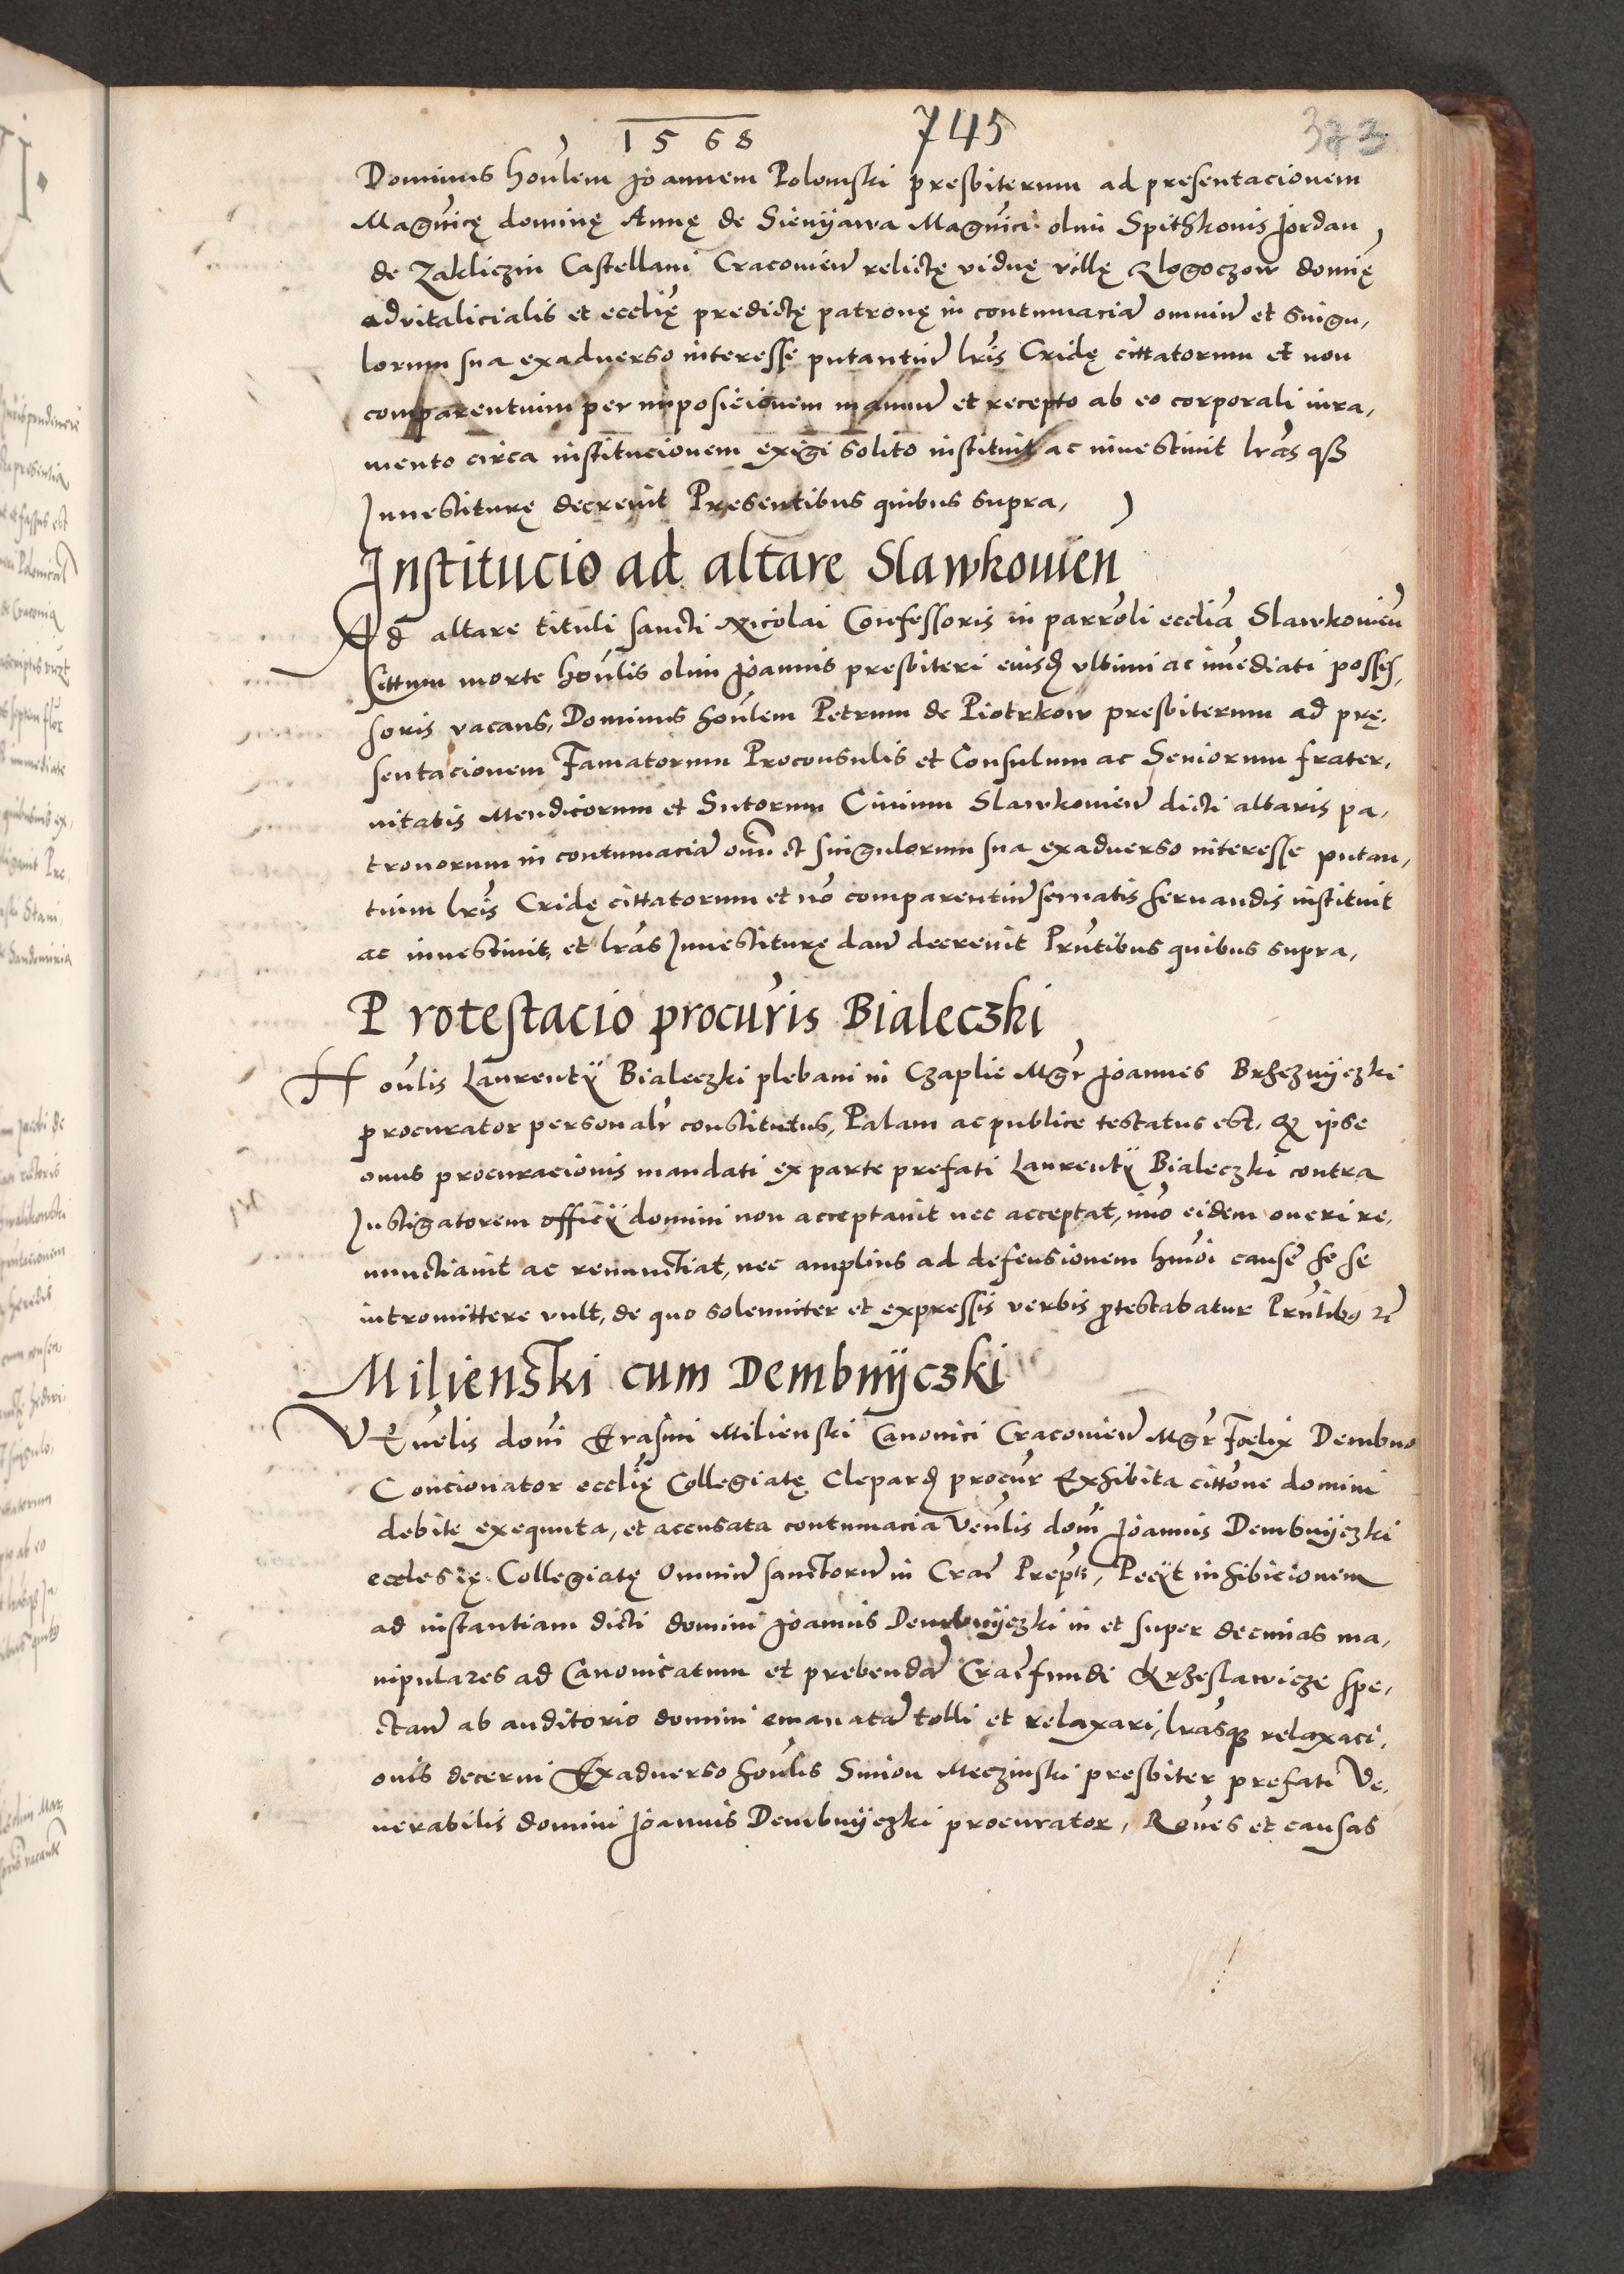 1568 745 373
Dominus hon̄lem Joannem Polomski presbiterum ad presentacionem
Magn̄icę dominę Annę de Sienijawa Magn̄ici olim Spithkonis Jordan
de Zakliczin Castellani Cracouien̄ relictę viduę villę Glogoczow domię
aduitalicialis et ecclię predictę patronę in contumaciā omniū et singu,
lorum sua exaduerso interesse putantiū lrīs Cridę cittatorum et non
comparentium per impositionem manuū et recepto ab eo corporali iura,
mento circa institucionem exigi solito instituit ac inuestiuit lrās qȝ
Inuestiturę decreuit Presentibus quibus supra,
Institucio ad altare Slawkouien
Ad altare tituli sancti Nicolai Confessoris in parrōli eccliā Slawkouien̄
sittum morte hon̄lis olim Joannis presbiteri eiusd̄ vltimi ac im̄ediati posses,
soris vacans, Dominus hon̄lem Petrum de Piotrkow presbiterum ad prę,
sentacionem Famatorum Proconsulis et Consulum ac Seniorum frater,
nitatis Mendicorum et Sutorum Ciuium Slawkouien̄ dicti altaris pa,
tronorum in contumaciā om̄ et singulorum sua exaduerso interesse putan,
tium lrīs Cridę cittatorum et nō comparentiū seruatis seruandis instituit
ac inuestiuit, et lrās Inuestiturę dan̄ decreuit Prn̄tibus quibus supra,
Protestacio procurīs Bialeczki
Hon̄lis Laurentÿ Bialeczki plebani in Czaplie Mgr̄ Joannes Brzeznijczki
procurator personalr̄ constitutus, Palam ac publice testatus est, qȝ ipse
onus procuracionis mandati ex parte prefati Laurentÿ Bialeczki contra
Instigatorem officÿ domini non acceptauit nec acceptat, imo eidem oneri re,
nunctiauit ac renunctiat, nec amplius ad defensionem hmōi causę se se
intromittere vult, de quo solenniter et expressis verbis p̄testabatur Prn̄tibȝ
Milienski cum Dembnijczki
Ven̄lis dom̄i Erasmi Milienski Canonici Cracouien̄ Mgr̄ Fœlix Dembno
Concionator ecclię Collegiatę Clepard̄ procur̄ Exhibita cittōne domini
debite exequuta, et accusata contumacia Ven̄lis dom̄i Joannis Dembnijczki
ecclesię Collegiatę Omniū sanctorū in Crac̄ Prepti, Peÿt inhibicionem
ad instantiam dicti domini Joannis Dembnijczki in et super decimas ma,
nipulares ad Canonicatum et prebendā Crac̄ fundi Krzeslawicze spe,
ctan̄ ab auditorio domini emanatā tolli et relaxari, lrāsqȝ relaxaci,
onis decerni Exaduerso hon̄lis Simon Meczinski presbiter prefati Ve,
nerabilis domini Joannis Dembnijczki procurator, Rōnes et causas